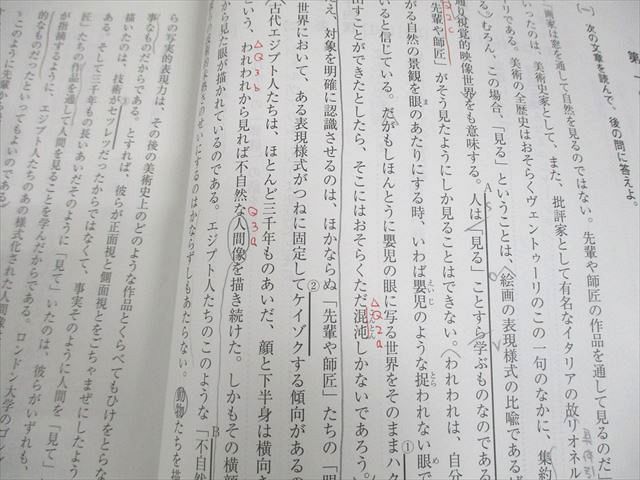 第
次の文章を読んで、後の問に答えよ。
「画家は窓を通して自然を見るのではない。先輩や師匠の作品を通して見るのだ」
いったのは、美術史家として、また、批評家として有名なイタリアの故リオネル
ある。美術の全歴史はおそらくヴェントゥーリのこの一句のなかに、集約
る。むろん、この場合、「見る」ということは、絵画の表現様式の比喩であるば
A
通の視覚的映像世界をも意味する。人は「見る」ことすら学ぶものなのである
Q2c
「先輩や師匠」がそう見たようにしか見ることはできない。われわれは、自分
がる自然の景観を眼のあたりにする時、いわば嬰児のような捉われない眼で
いると信じている。だがもしほんとうに嬰児の眼に写る世界をそのままハク
①
△Q2a
出すことができたとしたら、そこにはおそらくただ混沌しかないであろう。
え、対象を明確に認識させるのは、ほかならぬ「先輩や師匠」たちの「眼
世界において、ある表現様式がつねに固定してケイゾクする傾向があるの
②
△Q3b
古代エジプト人たちは、ほとんど三千年ものあいだ、顔と下半身は横向き
Q3a
いう、われわれから見れば不自然な人間像を描き続けた。しかもその横顔
から見た眼が描かれているのである。エジプト人たちのこのような「不自然
B
のせいにするのはかならずしもあたらない。動物たちを描
らの写実的表現力は、その後の美術史上のどのような作品とくらべてもひけをとらな
事なものだからである。とすれば、彼らが正面視と側面視とをごちゃまぜにしたよう
描いたのは、技術がセツレツだったからではなくて、事実そのように人間を「見て」
ある。そして三千年もの長いあいだそのように「見て」いたのは、彼らがいずれも、
匠」たちの作品を通して人間を見ることを学んだからである。ロンドン大学のゴン
が指摘するように、エジプト人たちのあの様式化された人間像
的なものだったといってもよいのである。
このように先輩か